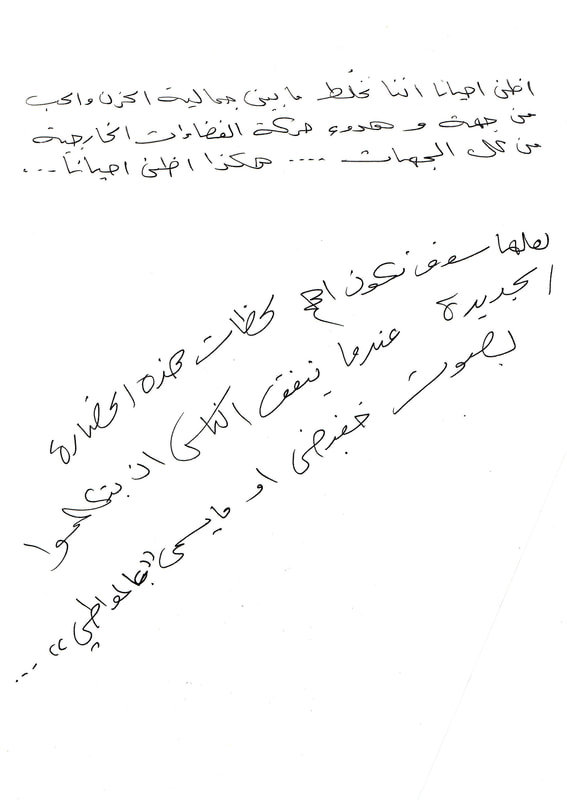 اظن احيانا اننا نخلُط ما بين جمالية الحزن والحب
من جهة و هدوء حركة الفضاءات الخارجية
من كل الجهات .... هكذا اظن احياناً ...
لعلها سوف تكون اهم لحظات هذه الحضارة
الجديدة عندما يتفق الناس ان يتكلموا
بصوت خفيض او ما يسمى "بالواطي" ...